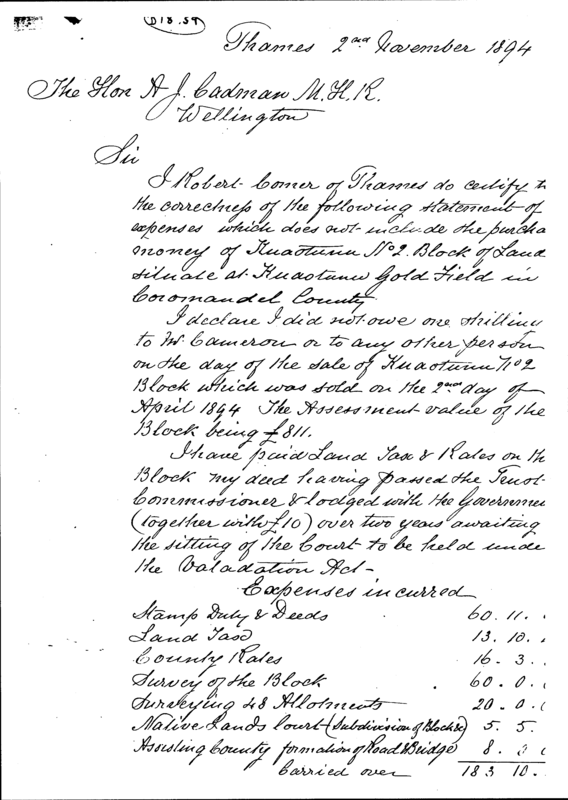 D18.59
Thames 2nd November 1894
The Hon A J. Cadman M.H.R.
Wellington
Sir
I Robert Comer of Thames do certify t
the correctness of the following statement of
expenses which does not include the purcha
money of Kuaotunu No 2. Block of Land
situate at Kuaotunu Gold Field in
Coromandel County
I declare I did not owe one shilling
to Mr Cameron or to any other person
on the day of the sale of Kuaotunu No 2
Block which was sold on the 2nd day of
April 1894 The Assessment value of the
Block being £811.
I have paid Land Tax & Rates on th
Block my deed having passed the Trust
Commissioner & lodged with the Governme
(together with £10) over two years awaiting
the sitting of the Court to be held unde
the Valadation Act -
Expenses incurred
Stamp Duty & Deeds 60. 11.
Land Tax 13. 10.
County Rates 16. 3.
Survey of the Block 60. 0.
Surveying 48 Allotments 20. 0.
Native Lands Court (Subdivision of Block &c) 5. 5.
Assisting County formation of Road & Bridge) 8.
Carried over 183 10.